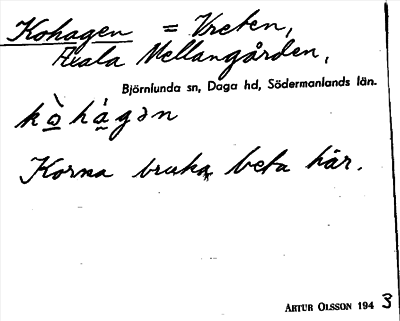 Kohagen = Vreten,
Axala Mellangården,
Björnlunda sn, Daga hd, Södermanlands län.
kò̱há̱gən
Korna bruka beta här.
ARTUR OLSSON 1943